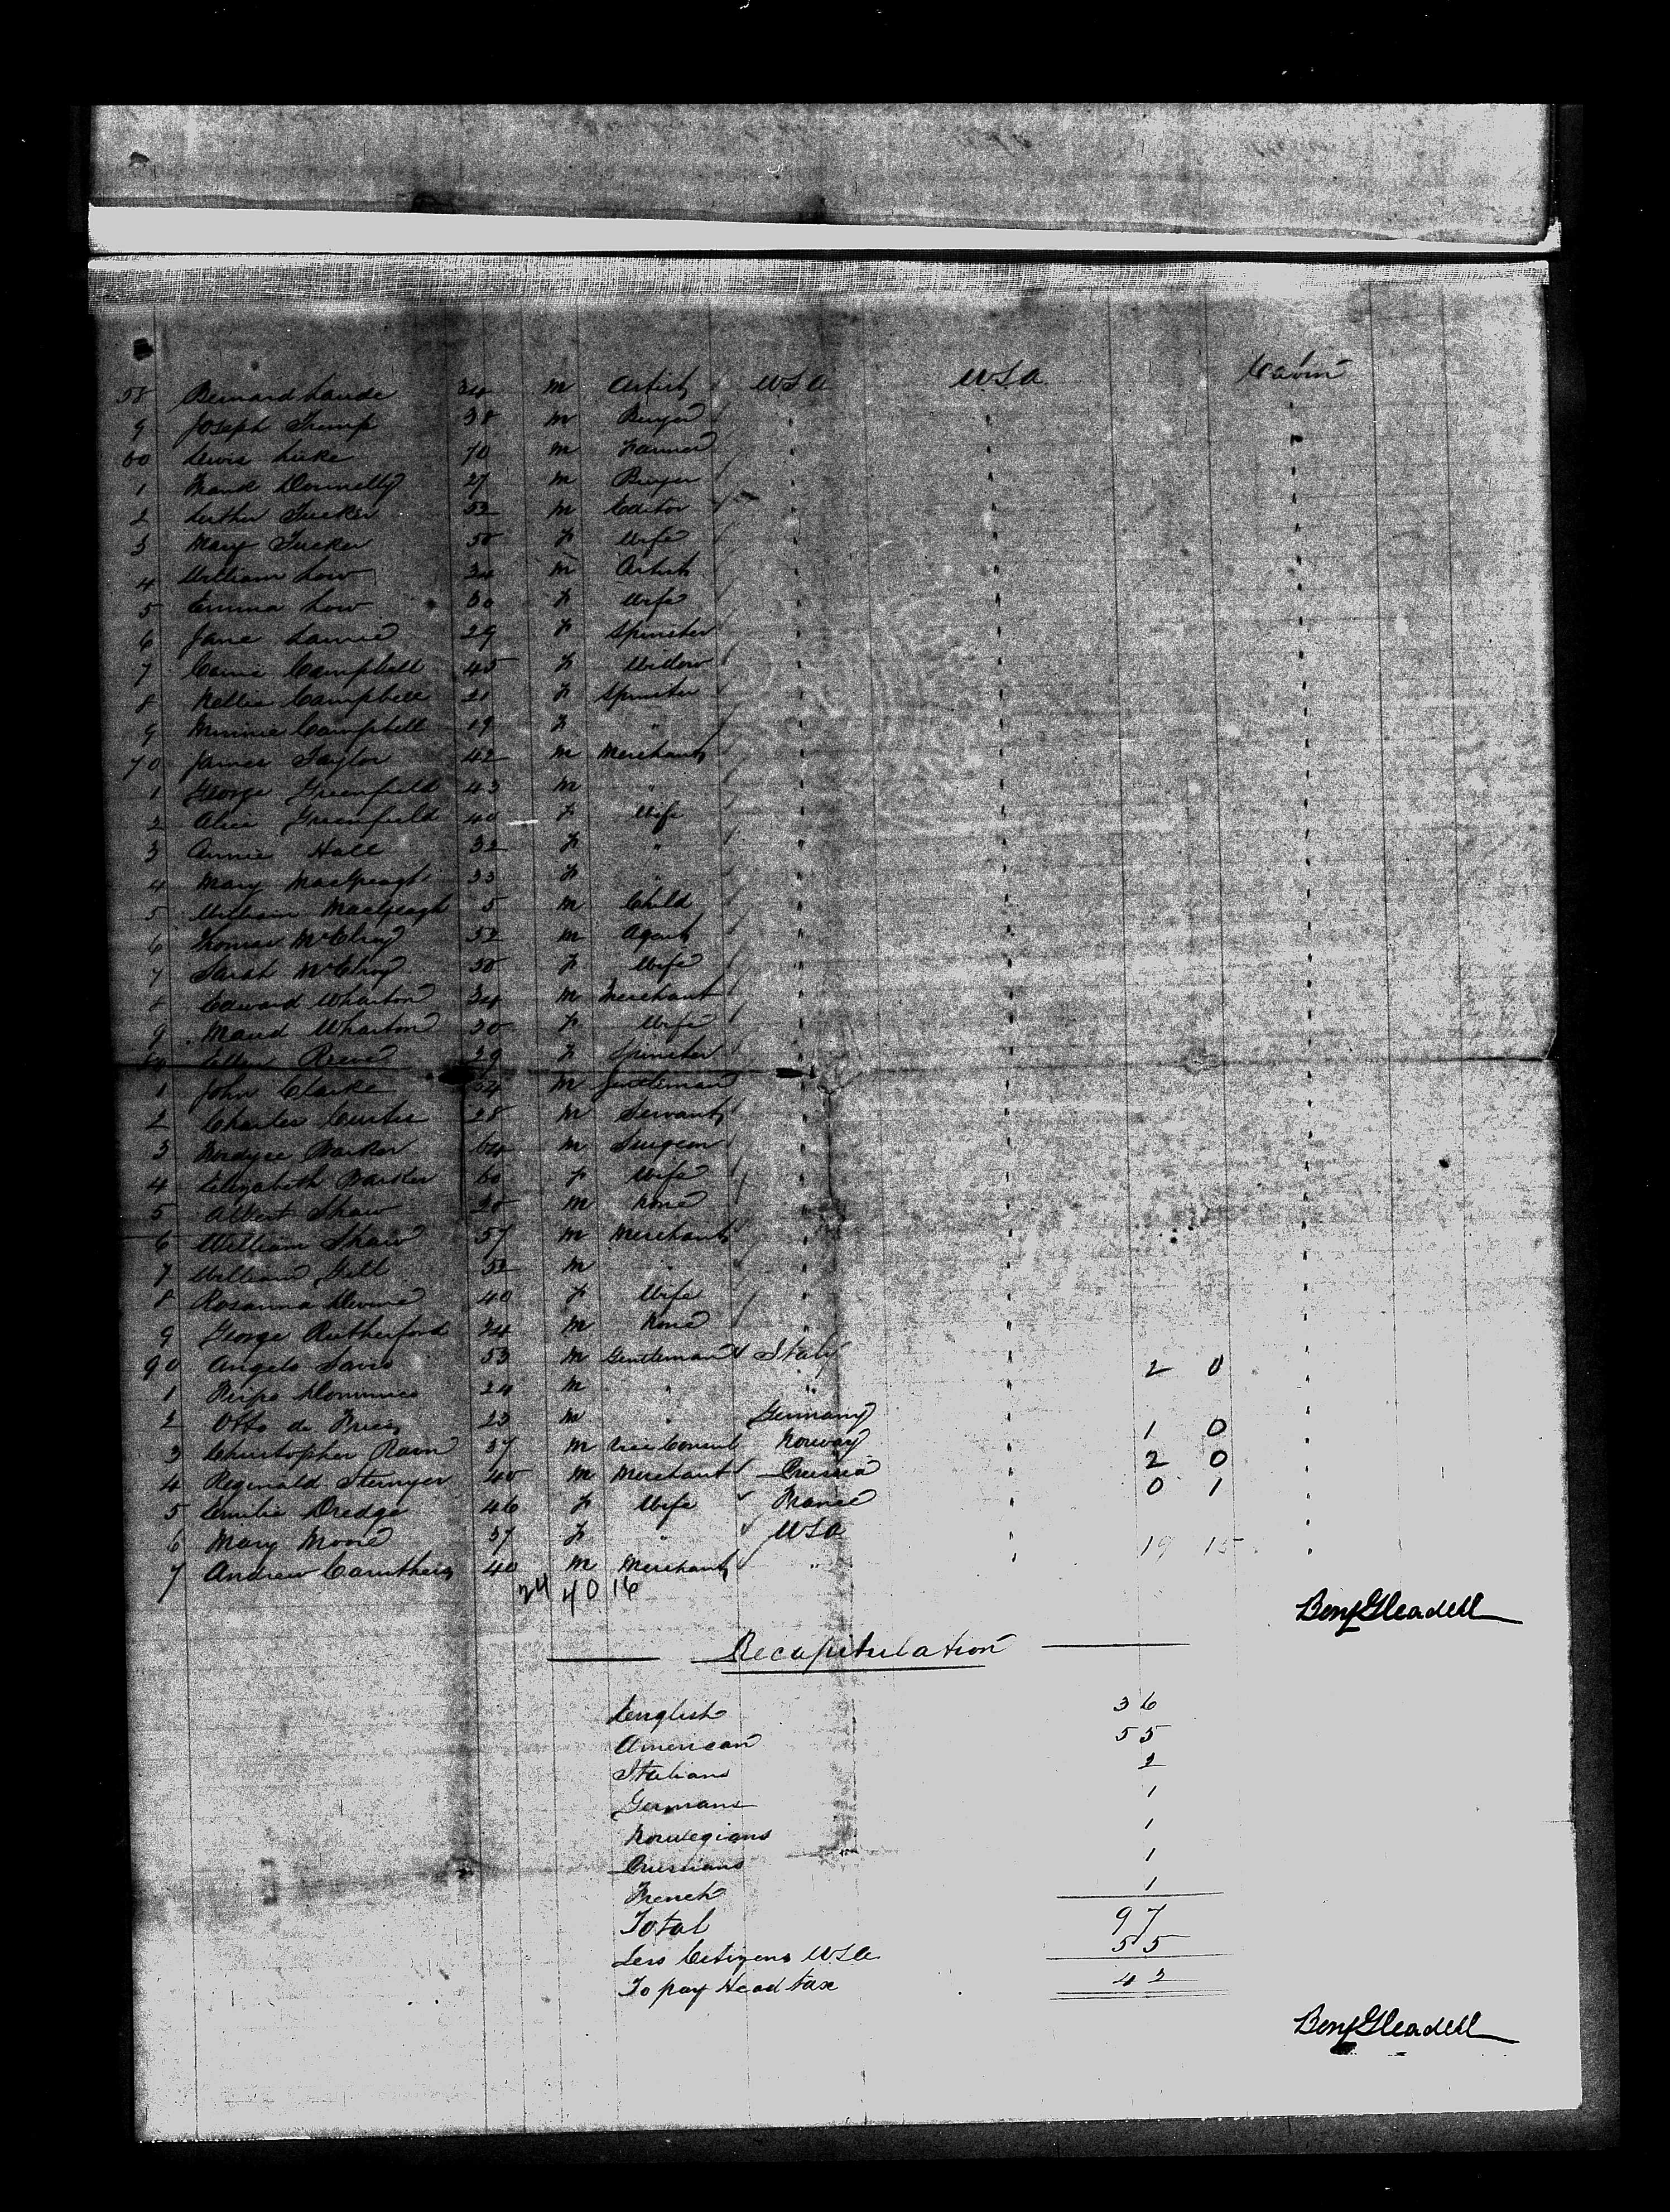 58 Bernard Lande 34 m Artist USA USA Cabin
9 Joseph 38 m Buyer " " "
60 Lewis Luke 70 m Farmer " " "
1 Donnelly 27 m Buyer " " "
2 Luther Tucker 52 m Editor " " "
3 Mary Tucker 50 F Wife " " "
4 William Low 34 m Artist " " "
5 Emma Low 30 F Wife " " "
6 Jane 29 F Spinster " " "
7 Carrie Campbell 45 F Widow " " "
8 Nellie Campbell 21 F Spinster " " "
9 Minnie Campbell 19 F " " " "
70 James Taylor 42 m Merchant " " "
1 George Greenfield 43 m " " " "
2 Alice Greenfield 40 F Wife " " "
3 Annie Hall 32 F " " " "
4 Mary MacGeagh 33 F " " " "
5 William MacGeagh 5 m Child " " "
6 Thomas McElroy 52 m Agent " " "
7 Sarah McElroy 50 F Wife " " "
8 Edward Wharton 34 m Merchant " " "
9 Maud Wharton 30 F Wife " " "
80 Ellen Reeve 29 F Spinster " " "
1 John Clarke 54 m Gentleman " " "
2 Charles Curtis 28 m Servant " " "
3 Fordyce Barker 64 m Surgeon " " "
4 Elizabeth Barker 60 F Wife " " "
5 Albert Shaw 20 m None " " "
6 William Shaw 57 m Merchant " " "
7 William Gill 52 m " " " "
8 Rosanna Devine 40 F Wife " " "
9 George Rutherford 34 m None " " "
90 Angelo 53 m Gentleman Italy " 2 0 "
1 Dominico 24 m " " " "
2 Otto de 23 m " Germany " 1 0 "
3 Christopher Ravn 37 m Vice Consul Norway " 2 0 "
4 Reginald 40 m Merchant " 0 1 "
5 Emilie Dredge 46 F Wife France " "
6 Mary Moore 37 F " USA " 19 15 "
7 Andrew Caruthers 40 m Merchant " " "
24 40 16
Benj Gleadell
Recapitulation
English 36
American 55
Italians 2
Germans 1
Norwegians 1
1
French 1
Total 97
Less Citizens USA 55
To pay Head tax 42
Benj Gleadell